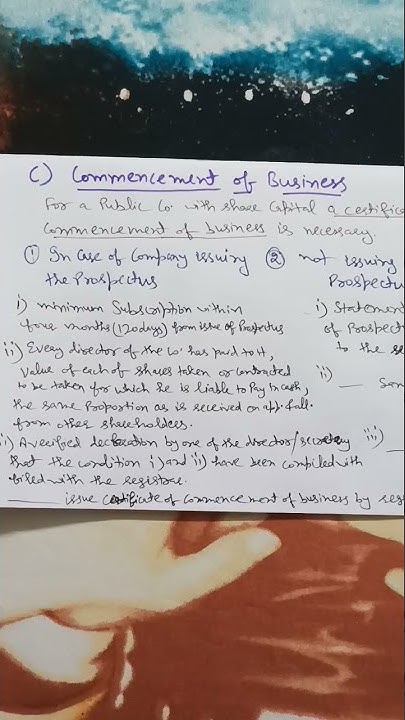 C) Commencement of Business
For a Public Co. with share Capital a certifica
Commencement of business is necessary.
① In case of Company issuing the Prospectus
② not issuing Prospectu
i) minimum Subscription within
four months (120days) from issue of Prospectus
ii) Every director of the Co. has paid to it,
value of each of shares taken or contracted
to be taken for which he is liable to Pay in cash,
the same Proportion as is received on app. & all.
from other shareholders.
i) A verified declaration by one of the director/secretary
that the condition i) and ii) have been complied with
filed with the registrar.
issue Certificate of Commencement of business by reg
i) Statement
of Prospect
to the
ii) Sam
iii)